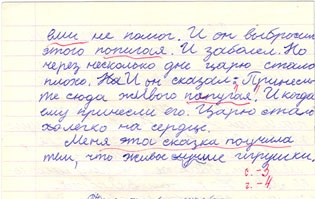 ему не помог. И он выбросил
этого попугая. И заболел. Но
через несколько дне царю стало
плохо. И он сказал: Принеси
те сюда живого попугая. И когда
ему принесли его. Царю стало
легко на сердце.
Меня эта сказка поучила
тем, что живы лучше игрушки.
с. -3
г. -4